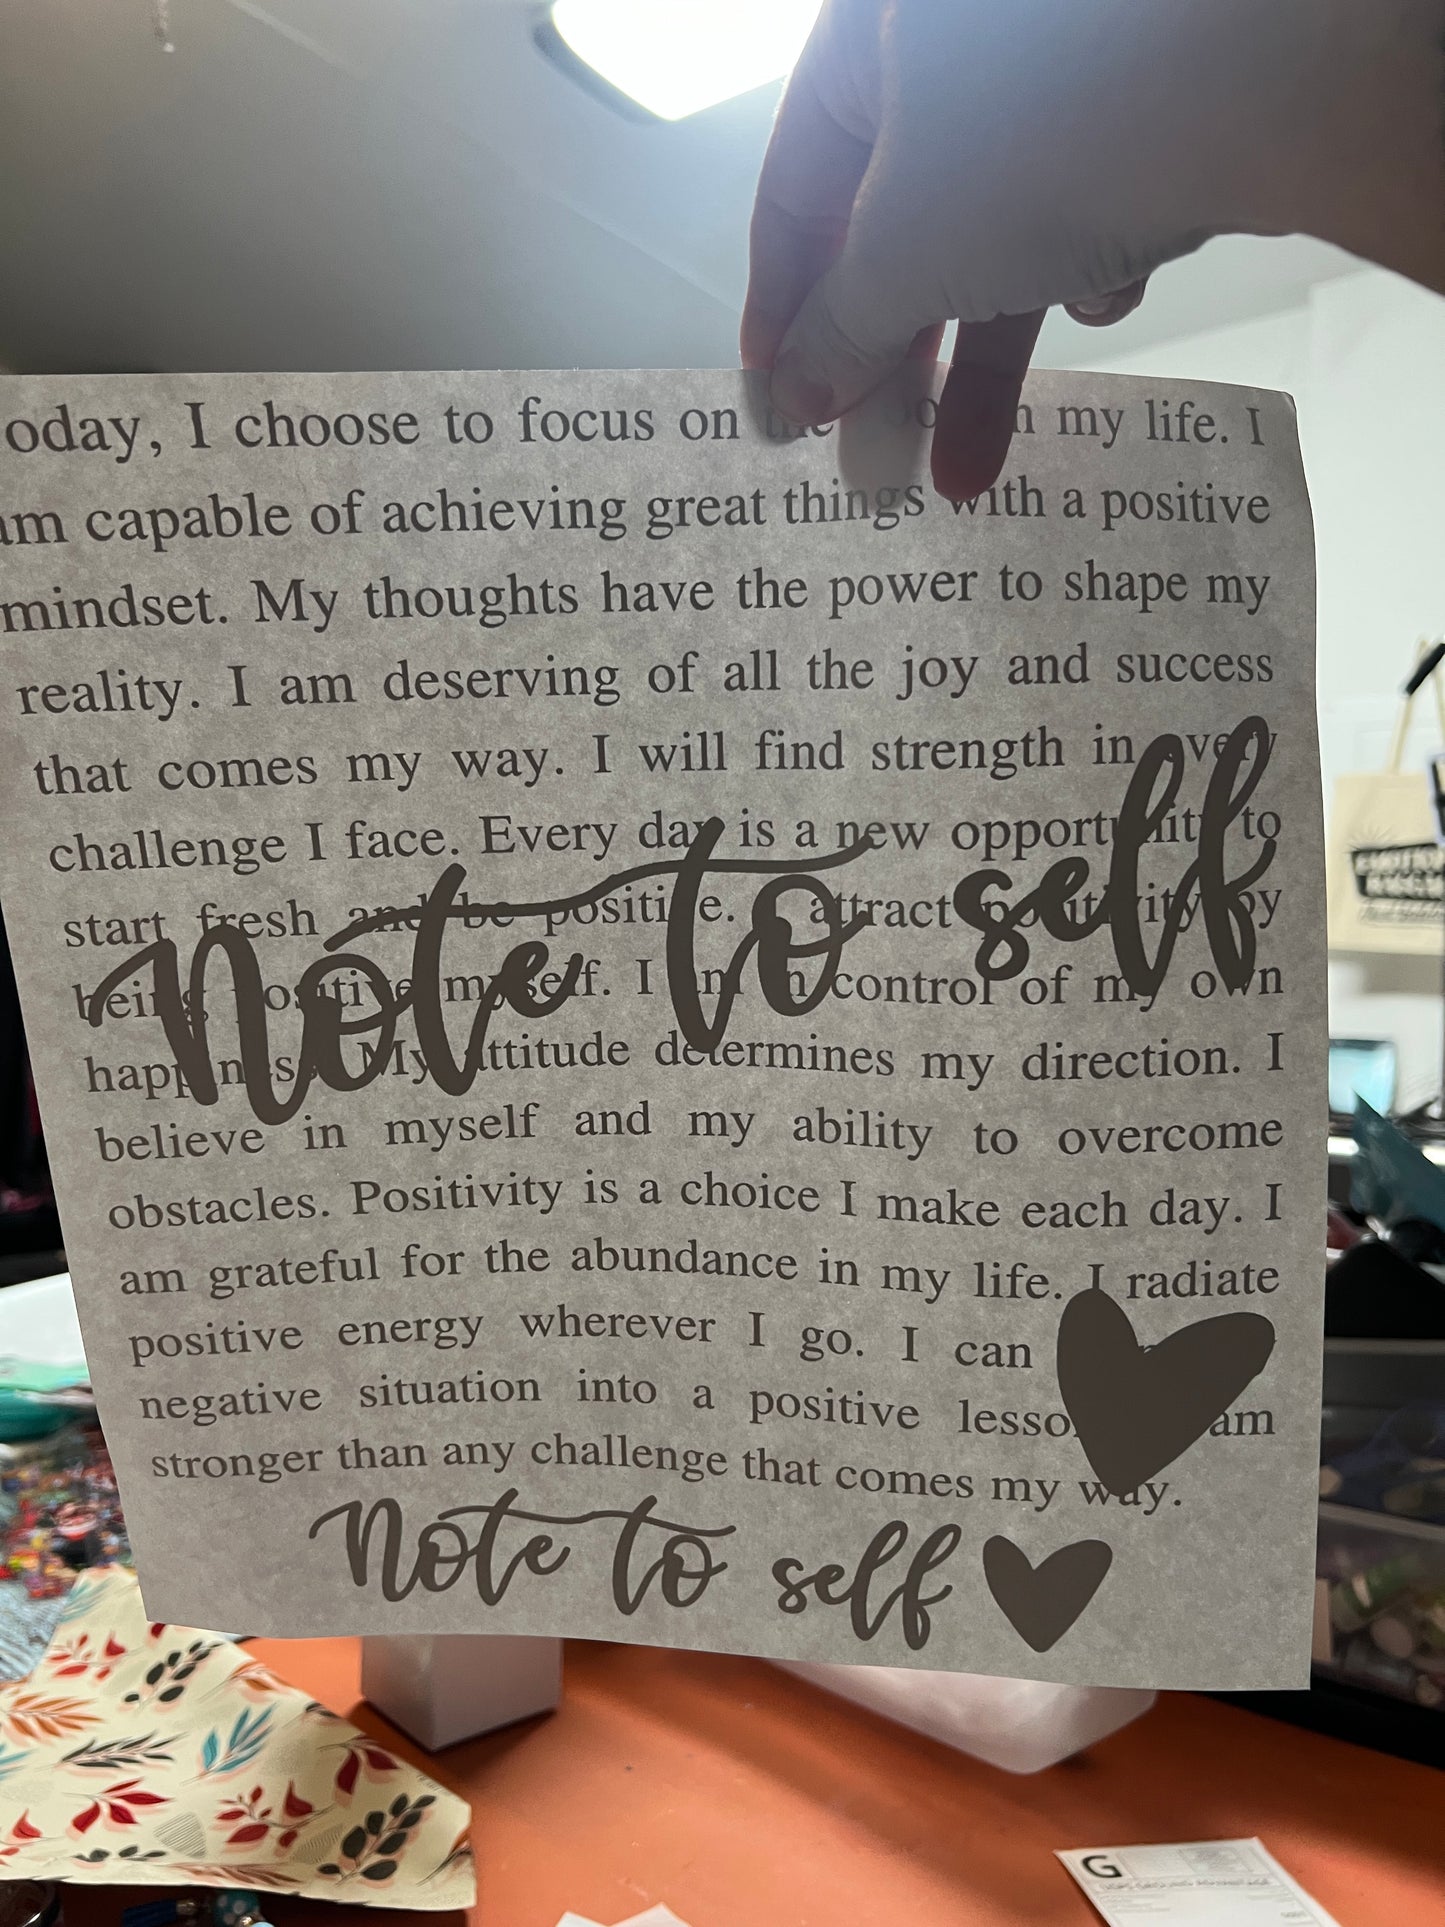 oday, I choose to focus on my life. I
am capable of achieving great things with a positive
mindset. My thoughts have the power to shape my
reality. I am deserving of all the joy and success
that comes my way. I will find strength in every
challenge I face. Every day is a new opportunity to
start fresh and be positive. I attract positivity by
being positive myself. I am in control of my own
happiness. My attitude determines my direction. I
Note to self
believe in myself and my ability to overcome
obstacles. Positivity is a choice I make each day. I
am grateful for the abundance in my life. I radiate
positive energy wherever I go. I can
negative situation into a positive lesson. am
stronger than any challenge that comes my way.
Note to self
G